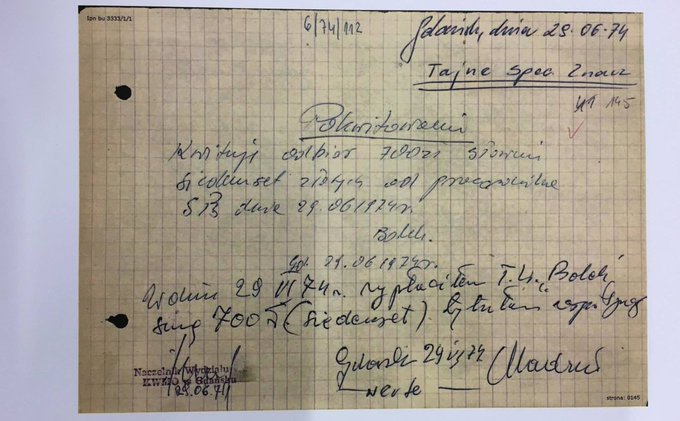 Ipn bu 3333/1/1
6/74/112
Gdańsk, dnia 29.06.74
Tajne spec. Znacz
145
Pokwitowanie
Kwituję odbiór 700zł słownie
siedemset złotych od pracownika
SB dnia 29.06.1974r.
Bolek.
Gd. 29.06.1974r.
W dniu 29 VI 74r. wypłaciłem T.W. "Bolek"
sumę 700 zł (siedemset)
Naczelnik Wydziału
KWMO w Gdańsku
29.06.74
Gdańsk 29 VI 74
verte
strona: 0145